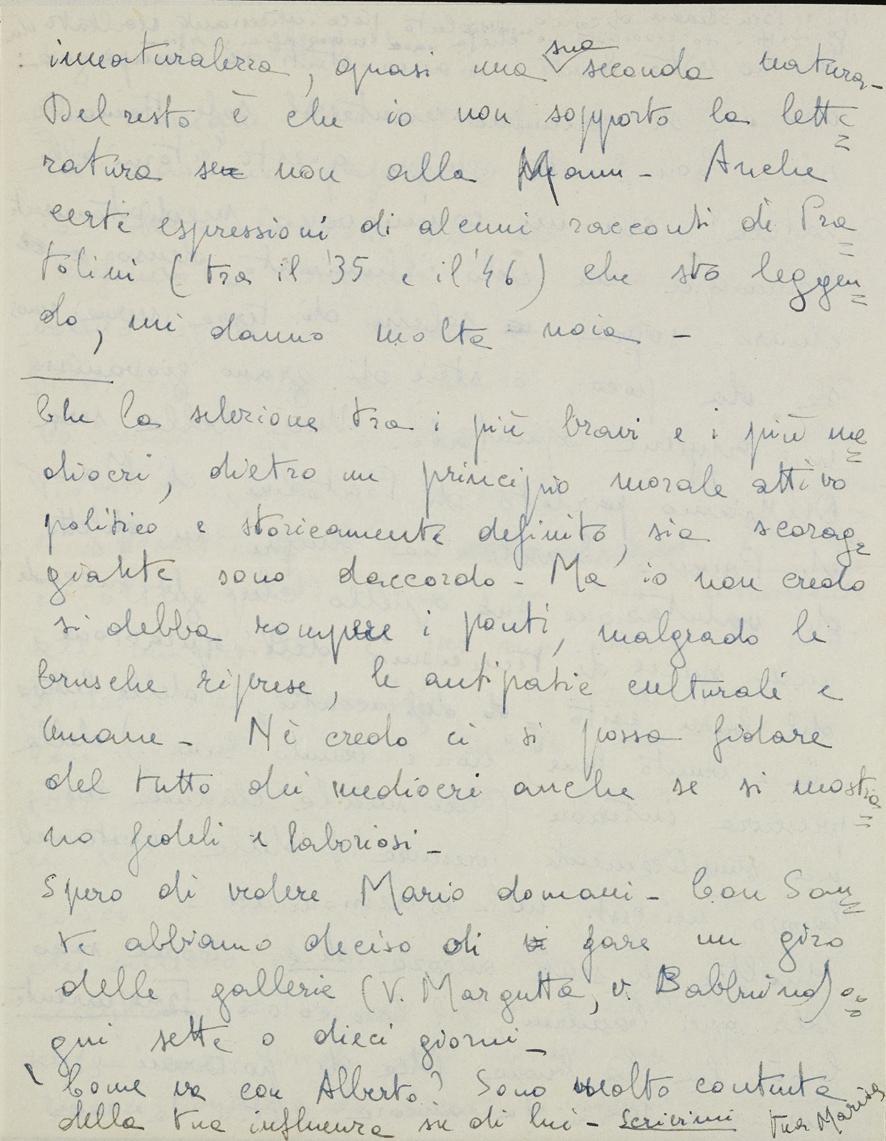 innaturalezza, quasi una sua seconda natura-
Del resto è che io non sopporto la lette=
ratura se non alla Mann - Anche
certe espressioni di alcuni racconti di Pra=
tolini (tra il '35 e il '46) che sto leggen=
do, mi danno molta noia -
Che la selezione tra i più bravi e i più me=
diocri, dietro un principio morale attivo
politico e storicamente definito, sia scorag=
giante sono daccordo - Ma io non credo
si debba rompere i ponti, malgrado le
brusche riprese, le antipatie culturali e
umane - Nè credo ci si possa fidare
del tutto dei mediocri anche se si mostra=
no fedeli e laboriosi -
Spero di vedere Mario domani - Con San=
te abbiamo deciso di fare un giro
delle gallerie (V. Margutta, v. Babbuino) o=
gni sette o dieci giorni -
Come va con Alberto? Sono molto contenta
della tua influenza su di lui - Scrivimi tua Maria